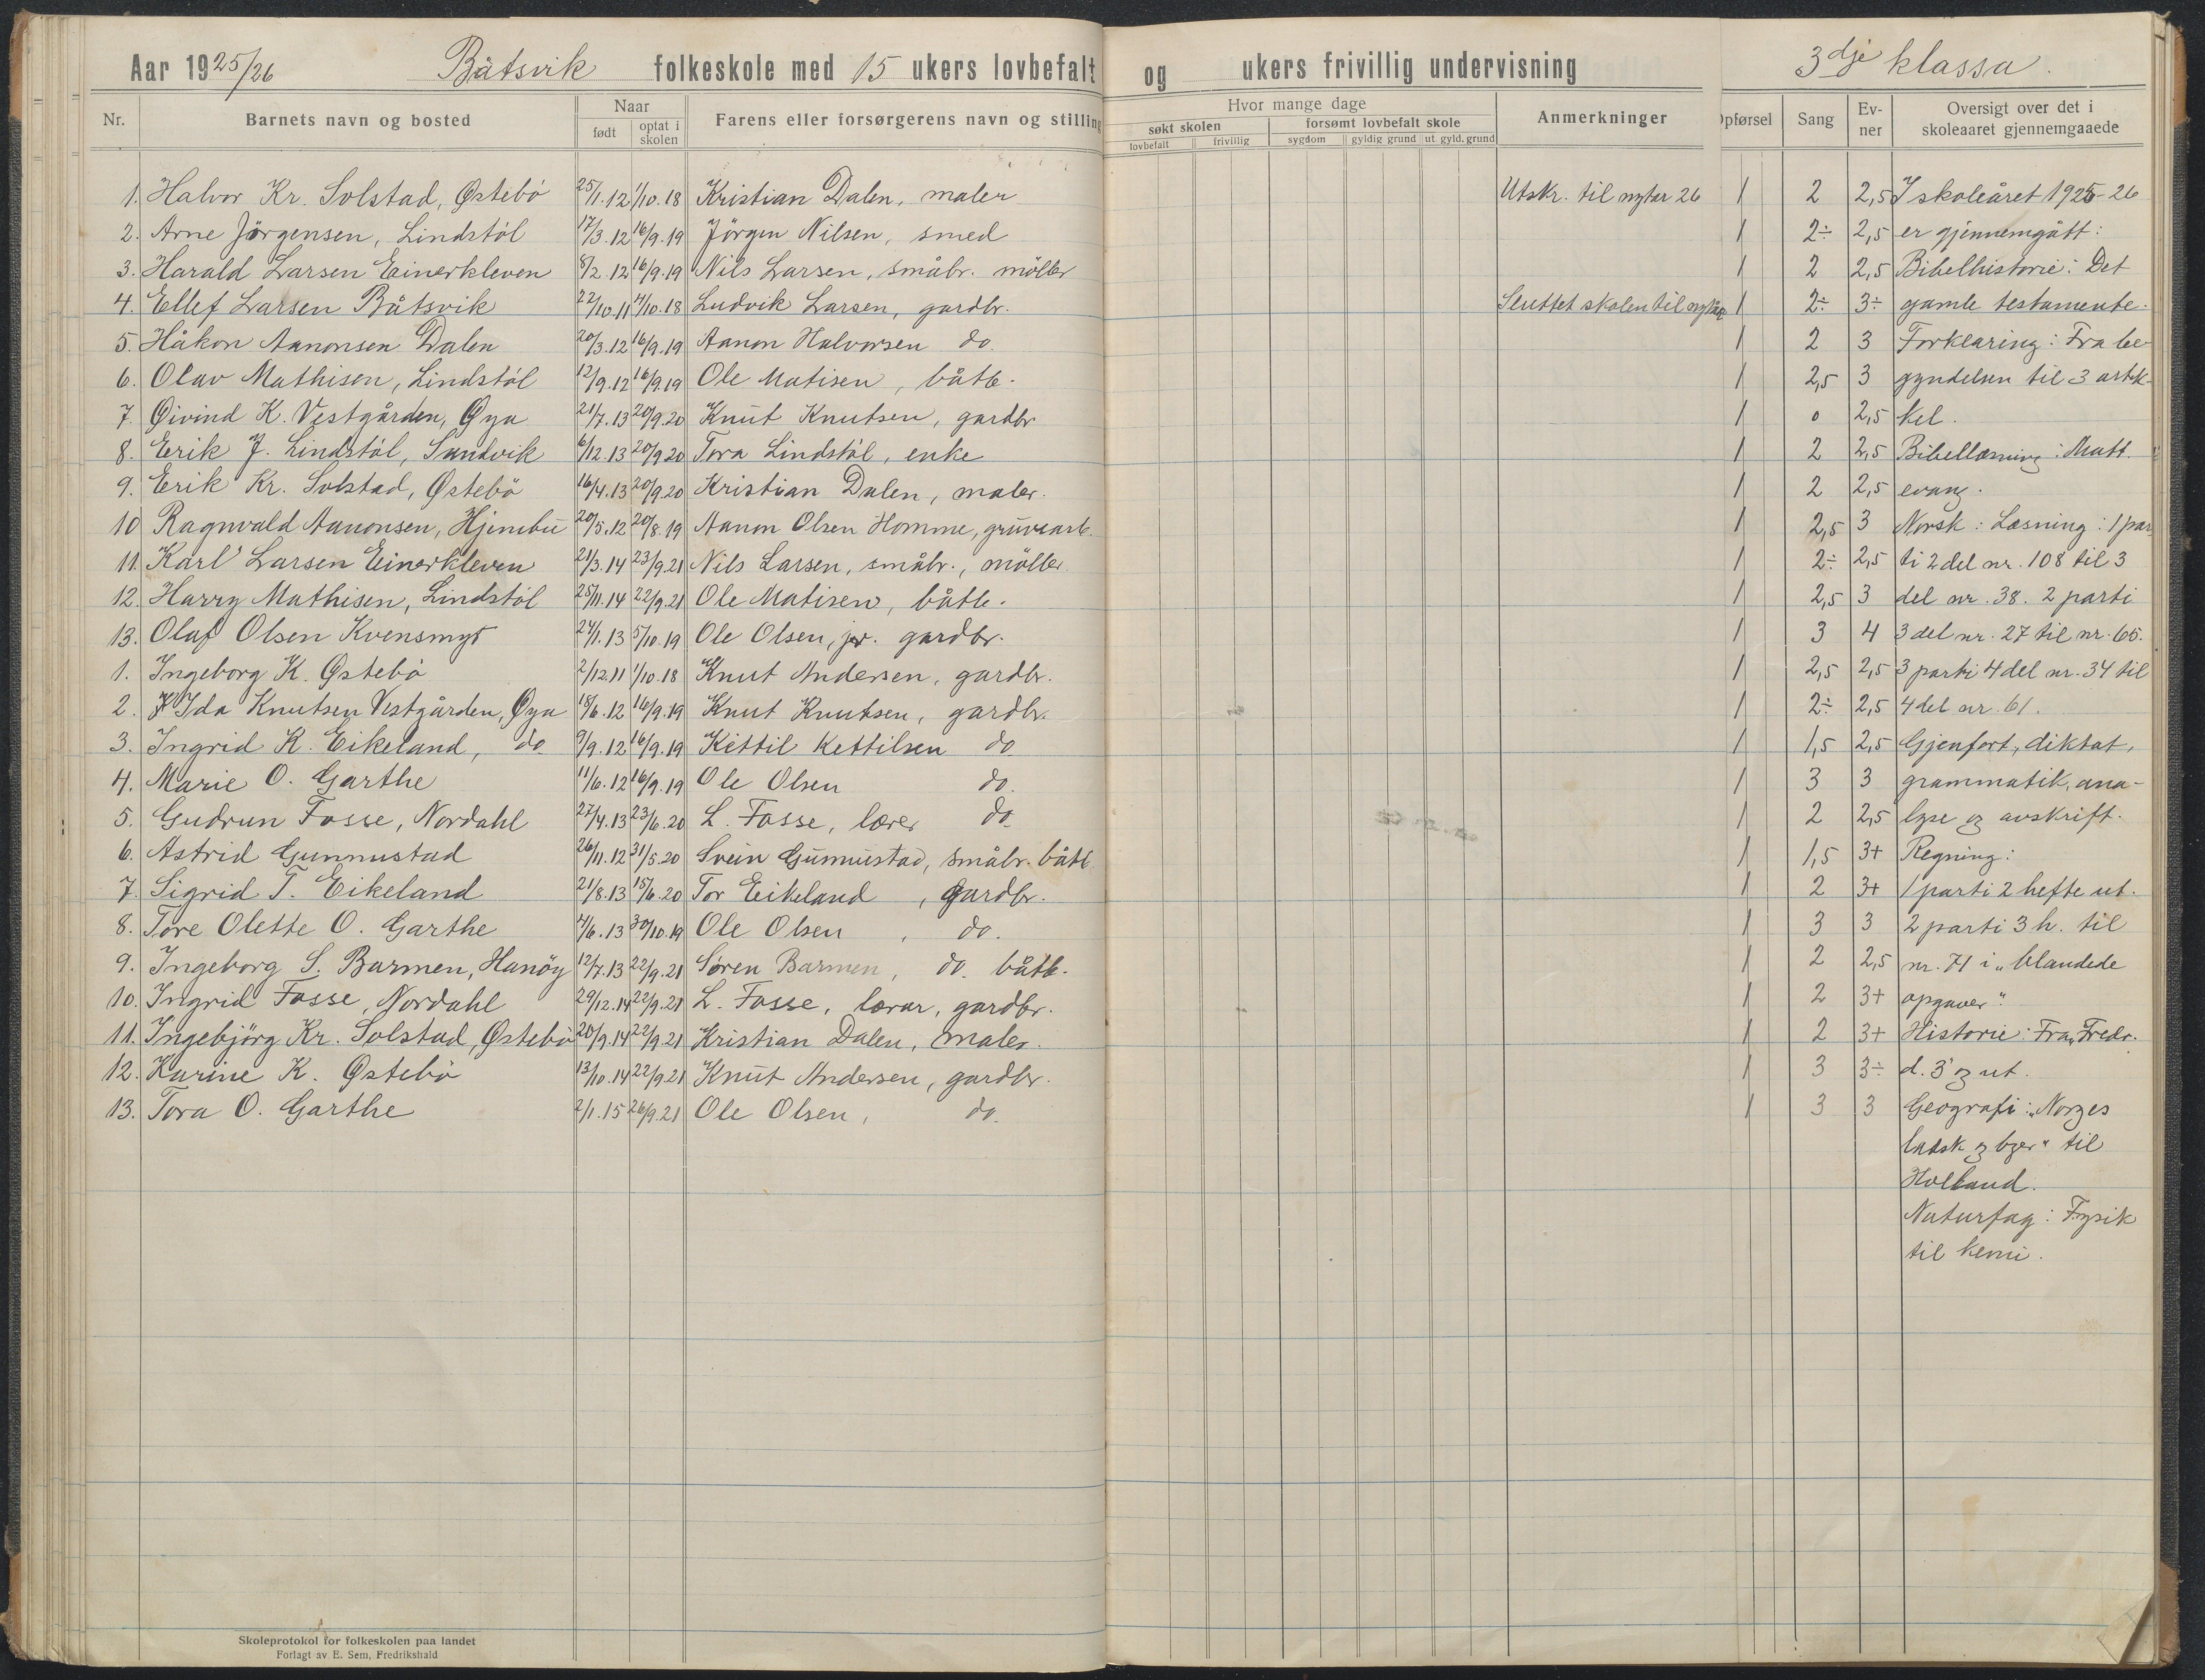 Aar 1925/26 Båtsvik folkeskole med 15 ukers lovbefalt og ukers frivillig undervisning 3dje klassa.
Nr. Barnets navn og bosted Naar født optat i skolen Farens eller forsørgerens navn og stilling Hvor mange dage søkt skolen lovbefalt frivillig forsømt lovbefalt skole sygdom gyldig grund ut. gyld. grund Anmerkninger Opførsel Sang Evner Oversigt over det i skoleaaret gjennemgaaede
1. Halvor Kr. Solstad, Østebö 25/1.12 1/10.18 Kristian Dalen, maler Utskr. til nytar 26 1 2 2,5 I skoleåret 1925-26
2. Arne Jörgensen, Lindstöl 17/3.12 16/9.19 Jörgen Nilsen, smed 1 2÷ 2,5 er gjennemgått:
3. Harald Larsen Einerkleven 8/2.12 16/9.19 Nils Larsen, småbr. möller 1 2 2,5 Bibelhistorie: Det
4. Ellef Larsen Båtsvik 22/10.11 4/10.18 Ludvik Larsen, gardbr. Sluttet skolen til nytår 1 2÷ 3÷ gamle testamente.
5. Håkon Aanonsen Dalen 20/3.12 16/9.19 Aanon Halvorsen do. 1 2 3 Forklaring: Fra be-
6. Olav Mathisen, Lindstöl 12/9.12 16/9.19 Ole Matisen, båtb. 1 2,5 3 gyndelsen til 3 artik-
7. Øivind K. Vestgården, Øya 21/7.13 20/9.20 Knut Knutsen, gardbr. 1 0 2,5 kel.
8. Erik J. Lindstöl, Sandvik 6/12.13 20/9.20 Tora Lindstöl, enke 1 2 2,5 Bibellæsning: Matt.
9. Erik Kr. Solstad, Østebö 16/4.13 20/9.20 Kristian Dalen, maler. 1 2 2,5 evang.
10 Ragnvald Aanonsen, Hjembu 20/5.12 20/8.19 Aanon Olsen Homme, gruvearb. 1 2,5 3 Norsk: Læsning: 1 par
11. Karl Larsen Einerkleven 21/3.14 23/9.21 Nils Larsen, småbr., möller 1 2÷ 2,5 ti 2 del nr. 108 til 3
12. Harry Mathisen, Lindstöl 25/11.14 22/9.21 Ole Matisen, båtb. 1 2,5 3 del nr. 38. 2 parti
13. Olaf Olsen Kvensmyr 24/1.13 5/10.19 Ole Olsen, jr. gardbr. 1 3 4 3 del nr. 27 til nr. 65.
1. Ingeborg K. Østebö 2/12.11 1/10.18 Knut Andersen, gardbr. 1 2,5 2,5 3 parti 4 del nr. 34 til
2. Ida Knutsen Vestgården, Øya 18/6.12 16/9.19 Knut Knutsen, gardbr. 1 2÷ 2,5 4 del nr. 61.
3. Ingrid K. Eikeland, do. 9/9.12 16/9.19 Kittil Kettilsen do 1 1,5 2,5 Gjenfort, diktat,
4. Marie O. Garthe 11/6.12 16/9.19 Ole Olsen do. 1 3 3 grammatik, ana-
5. Gudrun Fosse, Nordahl 27/4.13 23/6.20 L. Fosse, lærer do. 1 2 2,5 lyse og avskrift.
6. Astrid Gunnustad 26/11.12 31/5.20 Svein Gunnustad, småbr. båtb. 1 1,5 3+ Regning:
7. Sigrid T. Eikeland 21/8.13 15/6.20 Tor Eikeland, gardbr. 1 2 3+ 1 parti 2 hefte ut.
8. Tore Olette O. Garthe 4/6.13 30/10.19 Ole Olsen, do. 1 3 3 2 parti 3 h. til
9. Ingeborg S. Barmen, Hanöy 12/7.13 22/9.21 Sören Barmen, do. båtb. 1 2 2,5 nr. 71 i „blandede
10. Ingrid Fosse, Nordahl 29/12.14 22/9.21 L. Fosse, lærar, gardbr. 1 2 3+ opgaver"
11. Ingebjörg Kr. Solstad, Østebö 20/9.14 22/9.21 Kristian Dalen, maler. 1 2 3+ Historie: Fra „Fredr.
12. Karine K. Østebö 13/10.14 22/9.21 Knut Andersen, gardbr. 1 3 3÷ d. 3" og ut.
13. Tora O. Garthe 2/1.15 26/9.21 Ole Olsen, do. 1 3 3 Geografi: „Norges
ladsk og byer" til
Holland.
Naturfag: Fysik
til kemi.
Skoleprotokol for folkeskolen paa landet
Forlagt av E. Sem, Fredrikshald